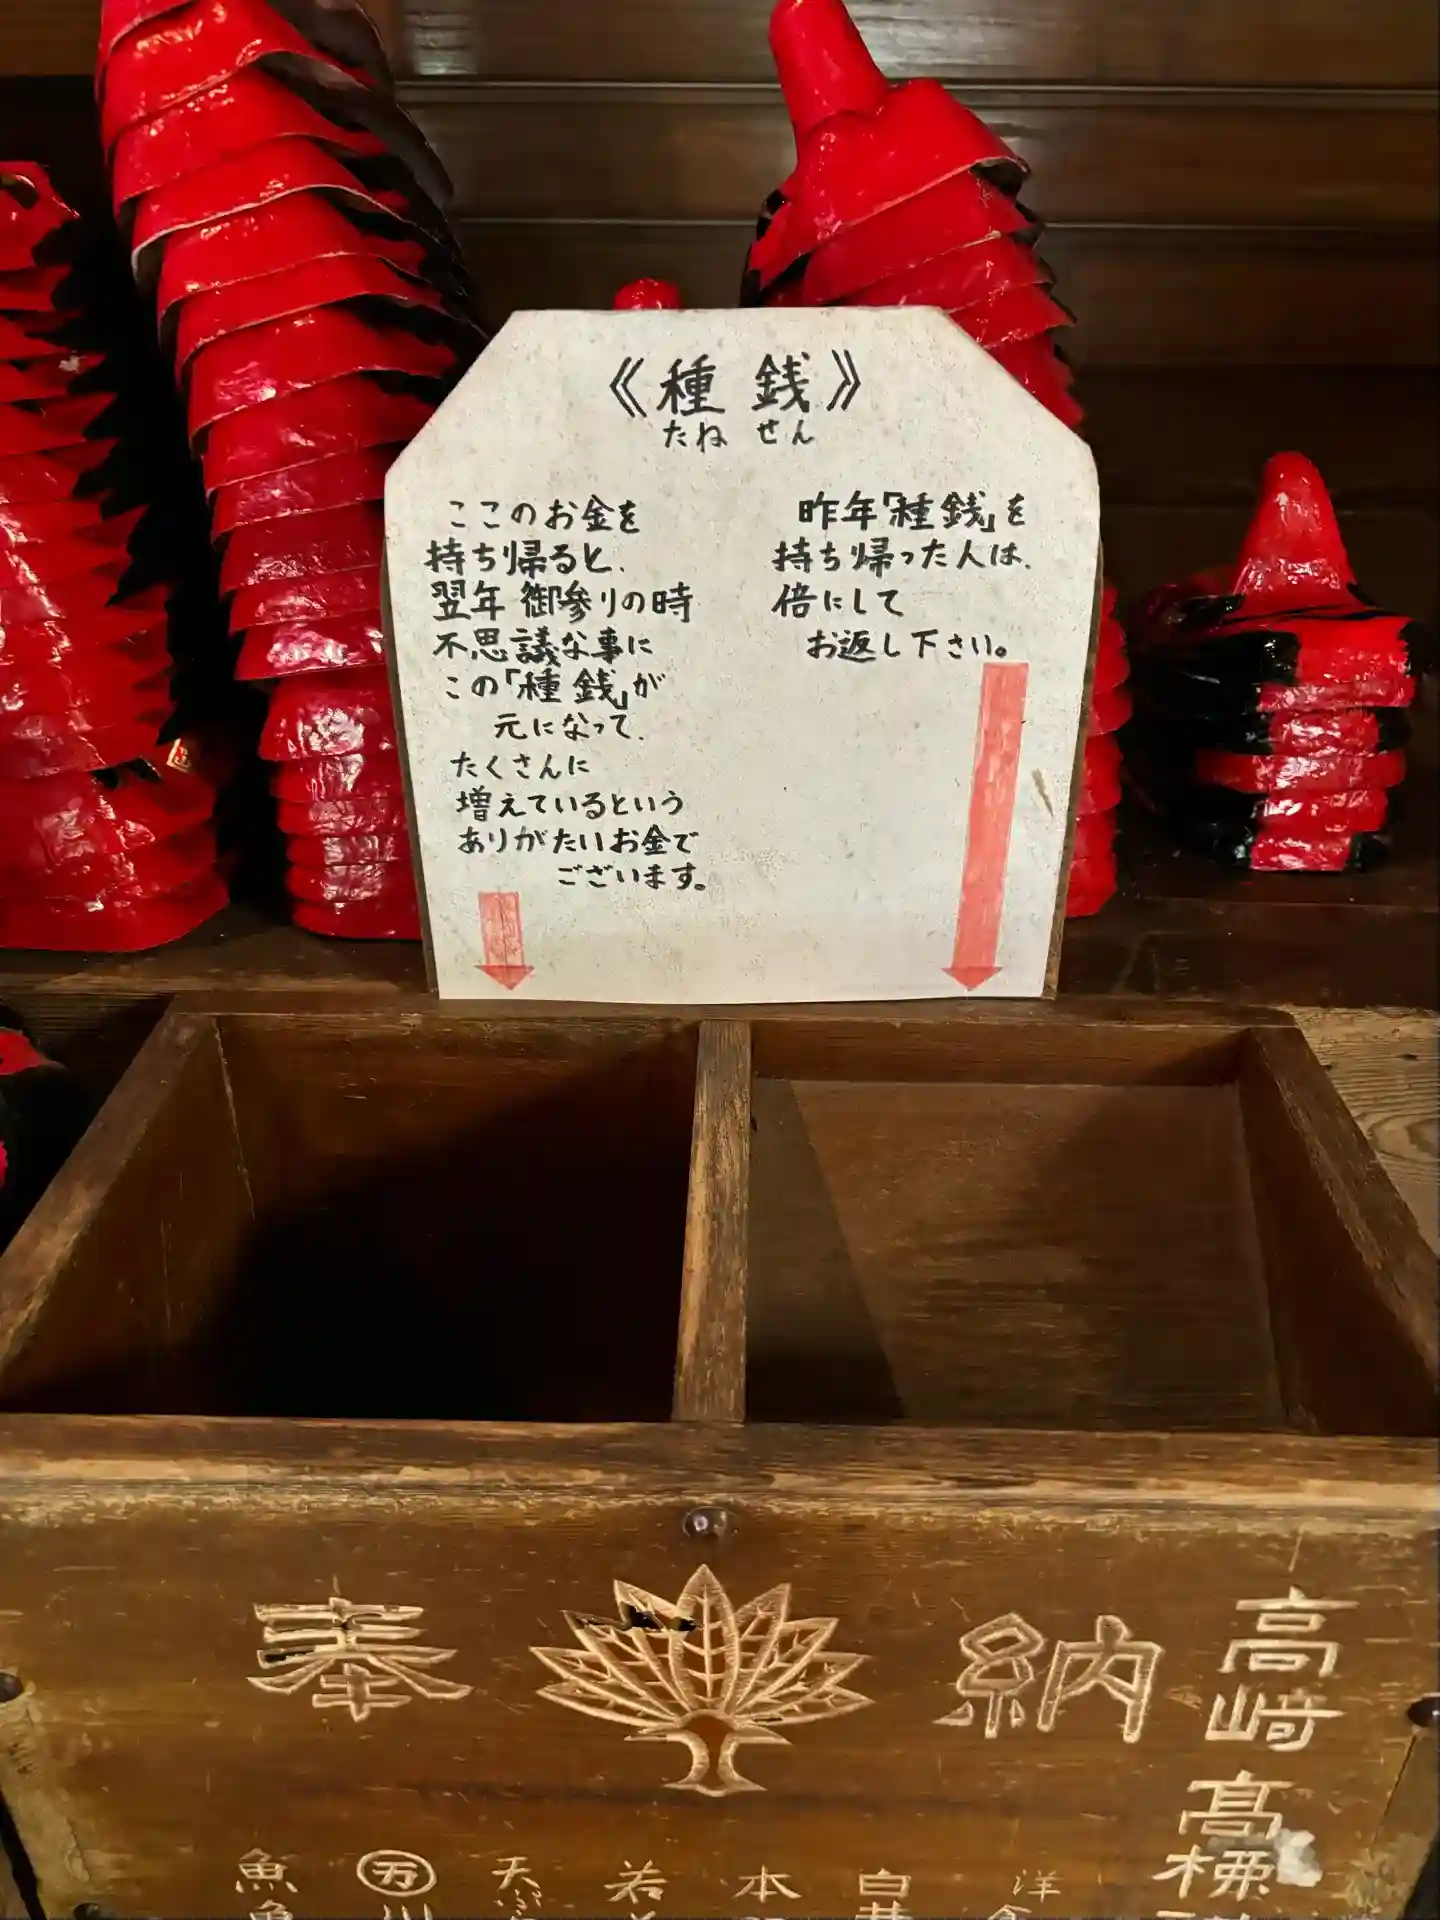 《種銭》
たね せん
ここのお金を
持ち帰ると、
翌年 御参りの時
不思議な事に
この「種銭」が
元になって、
たくさんに
増えているという
ありがたいお金で
ございます。
昨年「種銭」を
持ち帰った人は、
倍にして
お返し下さい。
奉 納
高崎
髙
魚
万
天
若
本
白井
洋